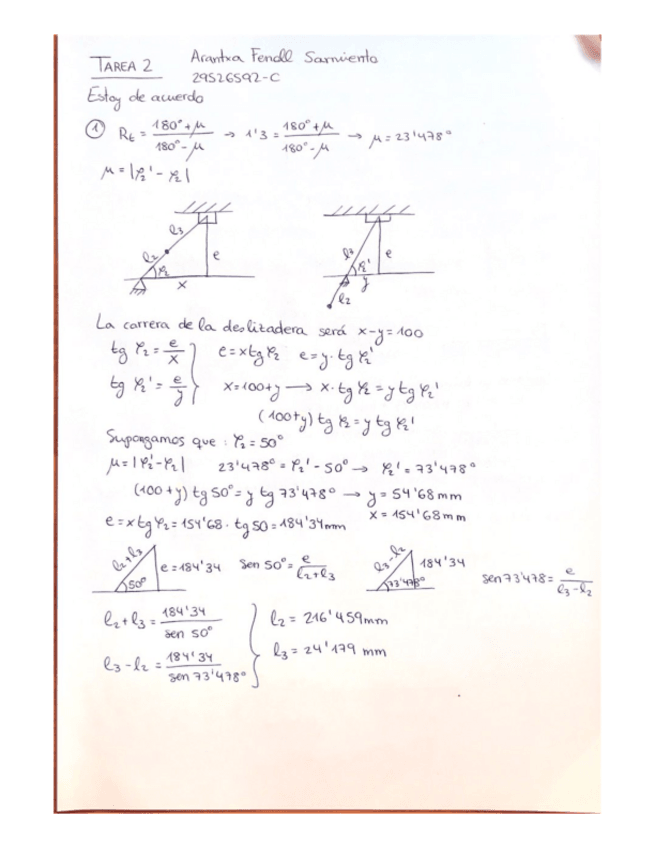 TAREA 2 Arantxa Fenoll Sarmiento
29526592-C
Estoy de acuerdo
① Rt = 180°+μ / 180°-μ → 1'3 = 180°+μ / 180°-μ → μ = 23'478°
μ = |φ2' - φ2|
l3 l2 φ2 e x
l3 φ2' e y l2
La carrera de la deslizadera será x-y=100
tg φ2 = e/x } e = x tg φ2 e = y · tg φ2'
tg φ2' = e/y } x = 100+y → x · tg φ2 = y tg φ2'
(100+y) tg φ2 = y tg φ2'
Supongamos que : φ2 = 50°
μ = |φ2' - φ2| 23'478° = φ2' - 50° → φ2' = 73'478°
(100+y) tg 50° = y tg 73'478° → y = 54'68 mm
x = 154'68 mm
e = x tg φ2 = 154'68 · tg 50 = 184'34 mm
l2+l3 50° e = 184'34 sen 50° = e / l2+l3 l3-l2 73'478° 184'34 sen 73'478 = e / l3-l2
l2+l3 = 184'34 / sen 50° } l2 = 216'459 mm
l3-l2 = 184'34 / sen 73'478° } l3 = 24'179 mm